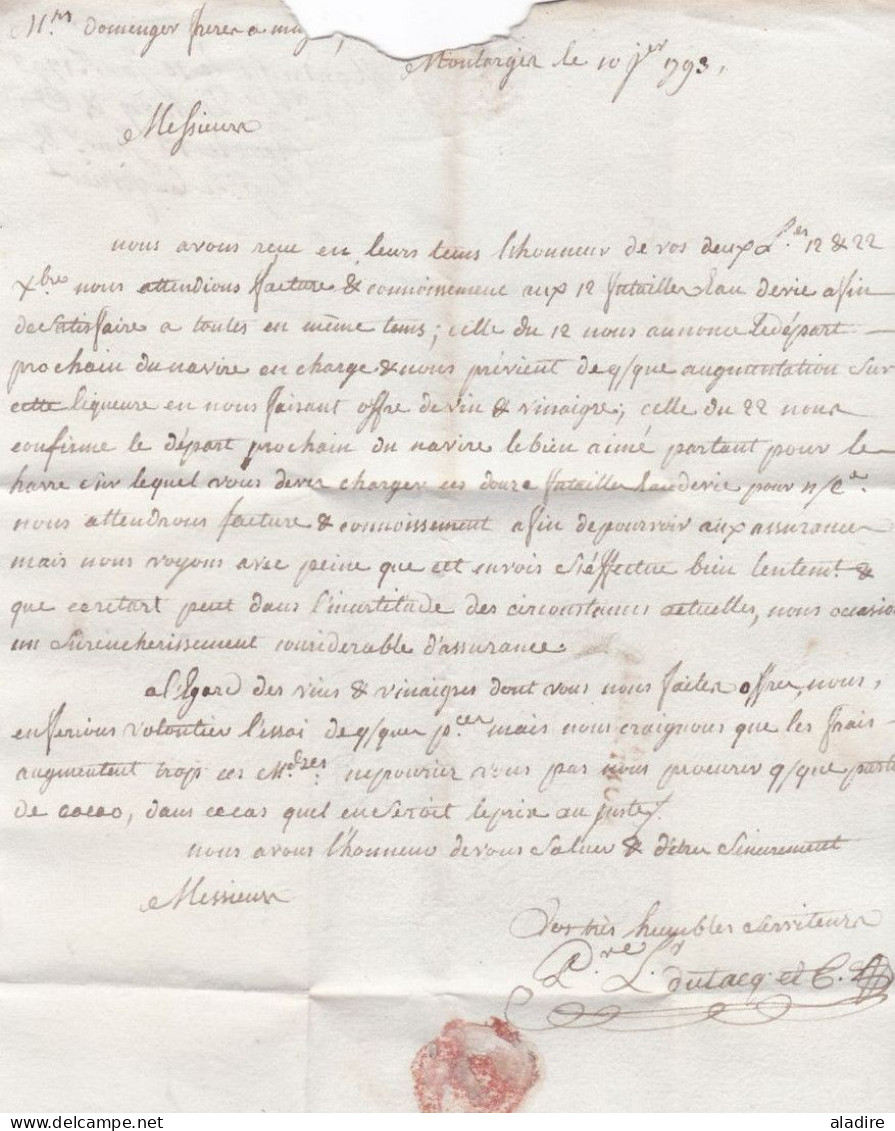 Mrs Domenger freres a
Montargis le 10 jer 1793,
Messieurs
nous avons reçu en leurs tems l'honneur de vos deux L.es 12 & 22
xbre nous attendions facture & connoissement aux 12 futailles Eau devie afin
de satisfaire a toutes en même tems; celle du 12 nous annonce le départ
prochain du navire en charge & nous prévient de q/que augmentation sur
cette liqueure en nous faisant offre de vin & vinaigre; celle du 22 nous
confirme le départ prochain du navire le bien aimé partant pour le
havre sur lequel vous devez charger ces douze futailles Eau devie pour n/Ce.
nous attendrons facture & connoissement afin de pourvoir aux assurances
mais nous voyons avec peine que cet envois s'éffectue bien lentemt. &
que ce retart peut dans l'incertitude des circonstances actuelles, nous occasio
un surencherissement considerable d'assurance.
a l'Egard des vins & vinaigres dont vous nous faites offres, nous,
en ferions volontier l'essai de q/ques p.ces mais nous craignons que les frais
augmentent trops ces M.dzes. ne pouriez vous pas nous procurer q/que partie
de cacao, dans ce cas quel en seroit le prix au juste/.
nous avons l'honneur de vous saluer & d'être sincerement
Messieurs
Vos très humbles serviteurs
P.re L.r dutacq et C.e
© aladire
delcampe.net